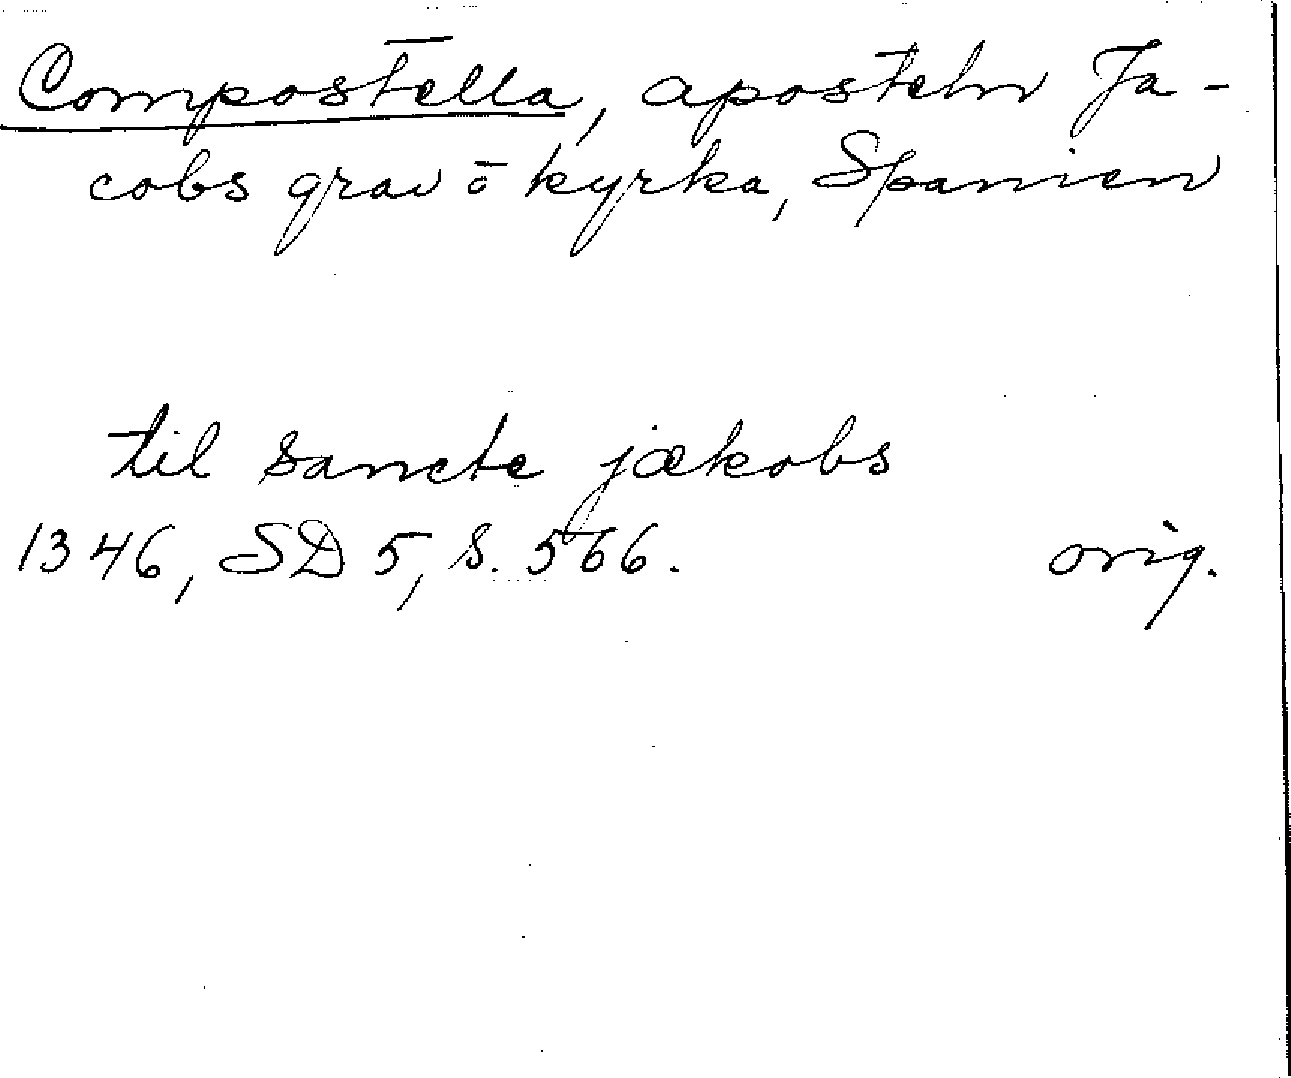 Compostella, aposteln Ja-
cobs grav ō kyrka, Spanien
til sancte jækobs
1346, SD 5, s. 566. orig.